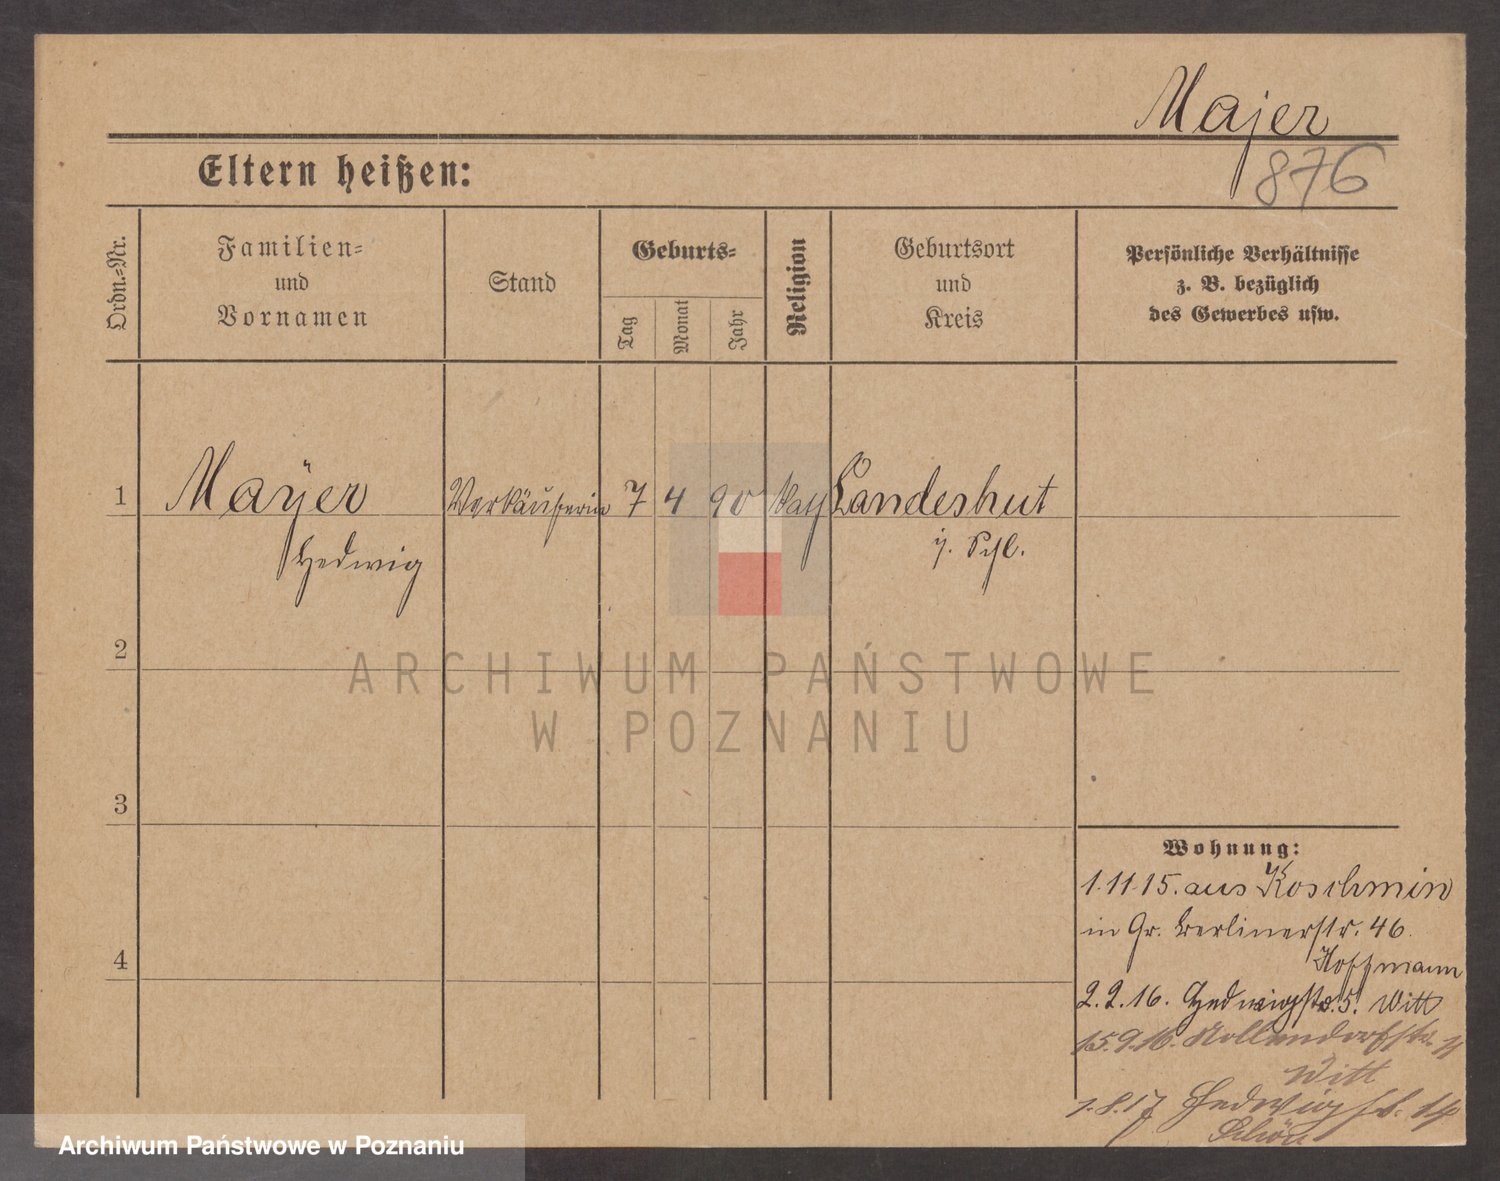 Majer
876
Eltern heißen:
Ordn.-Nr.
Familien-
und
Vornamen
Stand
Geburts-
Tag
Monat
Jahr
Religion
Geburtsort
und
Kreis
Persönliche Verhältnisse
z. B. bezüglich
des Gewerbes usw.
1 Mayer Verkäuferin 7 4 90 kath Landeshut
Hedwig i. Schl.
2
3
4
ARCHIWUM PAŃSTWOWE
W POZNANIU
Wohnung:
1.11.15. aus Koschmin
in Gr. Berlinerstr. 46.
Hoffmann
2.2.16. Hedwigstr. 5. Witt
15.9.16. Nollendorfstr. 11
Witt
1.8.17 Hedwigstr. 14
Archiwum Państwowe w Poznaniu